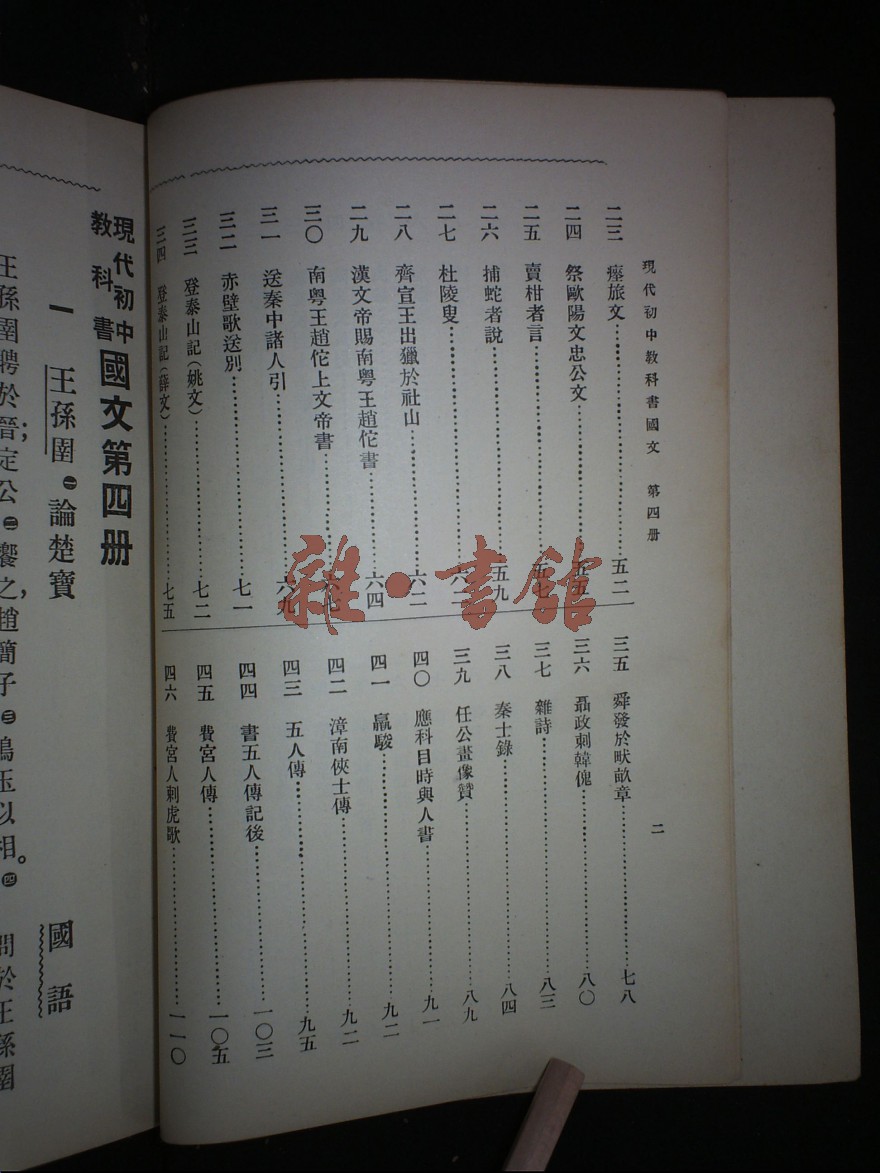 現代初中教科書國文 第四册
二
二三 瘞旅文 五二
二四 祭歐陽文忠公文 五五
二五 賣柑者言 五七
二六 捕蛇者說 五九
二七 杜陵叟 六一
二八 齊宣王出獵於社山 六二
二九 漢文帝賜南粤王趙佗書 六四
三〇 南粤王趙佗上文帝書 六七
三一 送秦中諸人引 六九
三二 赤壁歌送別 七一
三三 登泰山記(姚文) 七二
三四 登泰山記(薛文) 七五
三五 舜發於畎畝章 七八
三六 聶政刺韓傀 八〇
三七 雜詩 八三
三八 秦士錄 八四
三九 任公畫像贊 八九
四〇 應科目時與人書 九一
四一 羸駿 九二
四二 漳南俠士傳 九二
四三 五人傳 九五
四四 書五人傳記後 一〇三
四五 費宮人傳 一〇五
四六 費宮人刺虎歌 一一〇
現代初中教科書 國文第四册
一 王孫圉㊀論楚寶 國語
王孫圉聘於晉;定公㊁饗之,趙簡子㊂鳴玉以相。㊃ 問於王孫圉
雜·書館